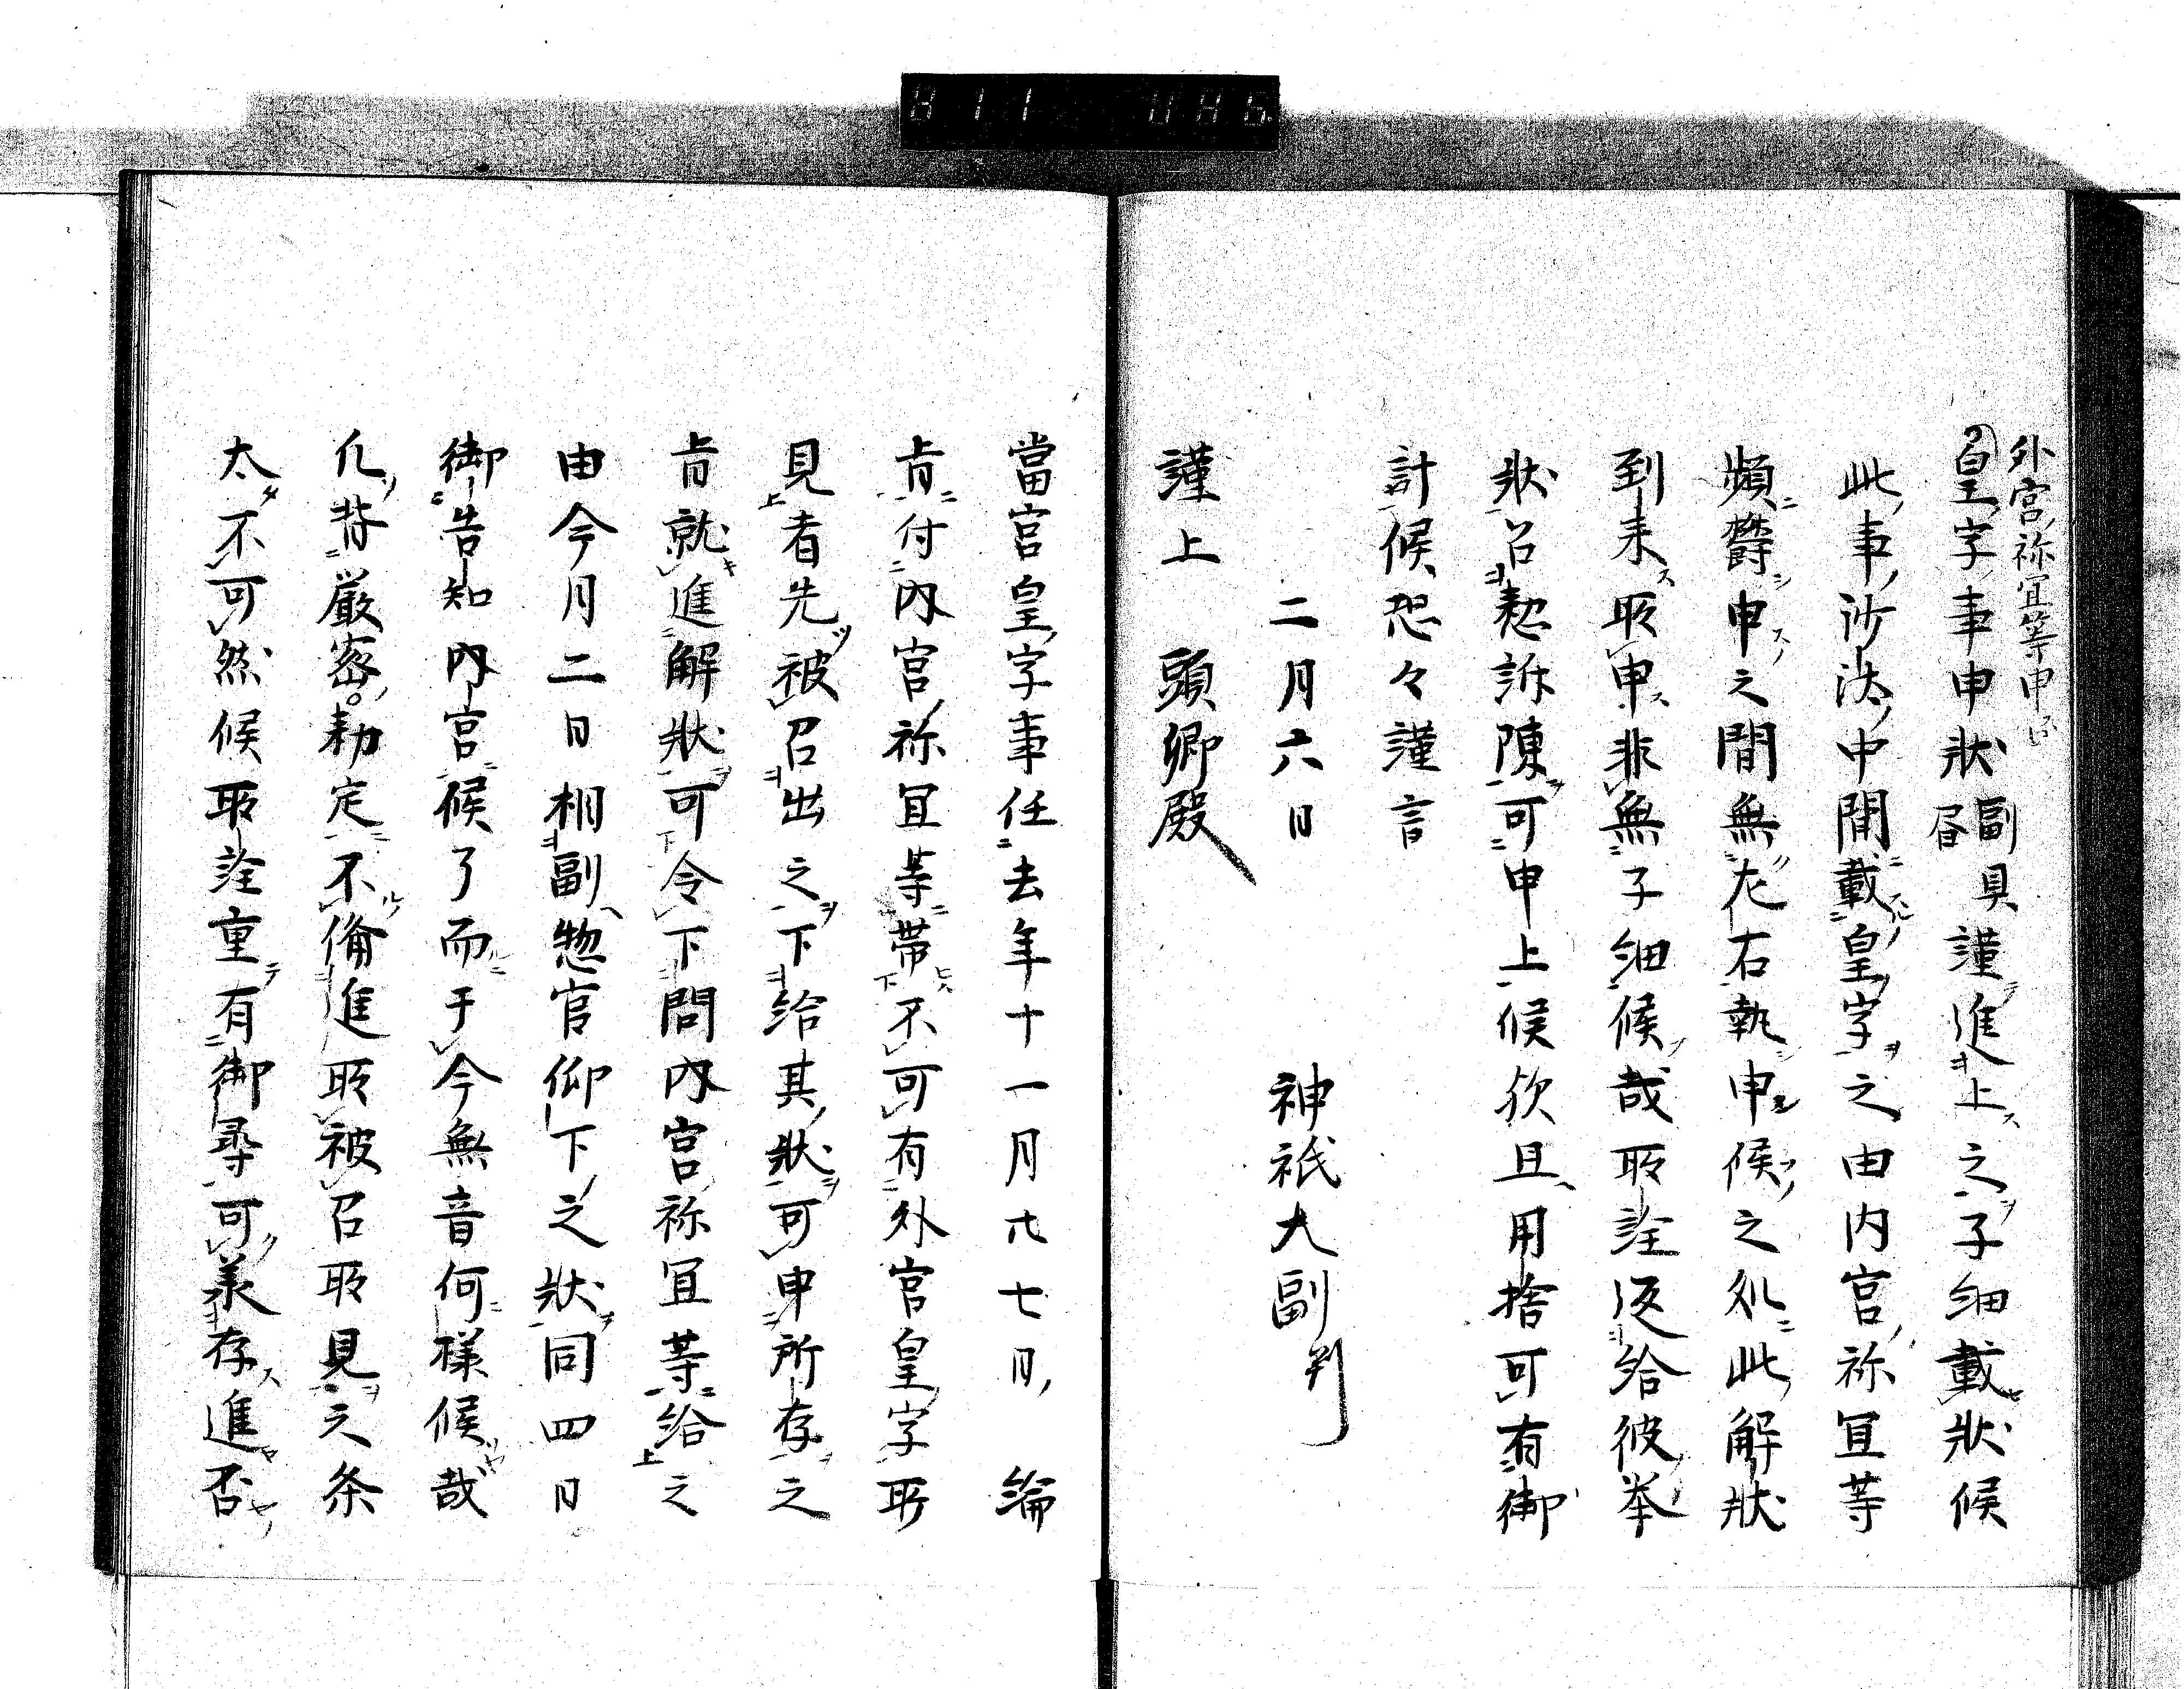 外宮祢宜等申
皇字事申状副具謹進上之子細載状候
此事沙汰中間載皇字之由内宮祢宜等
頻欝申之間無左右執申候之処此解状
到来所申非無子細候哉所詮返給彼挙
状召整訴陳可申上候欤且用捨可有御
計候恐々謹言
二月六日 神祇大副判
謹上 頭卿殿
當宮皇字事任去年十一月廿七日綸
旨付内宮祢宜等帯不可有外宮皇字所
見者先被召出之下給其状可申所存之
旨就進解状可令下問内宮祢宜等給之
由今月二日相副惣官仰下之状同四日
御告知内宮候了而于今無音何様候哉
凡背厳密勅定不備進所被召所見之条
太不可然候所詮重有御尋可承存進否